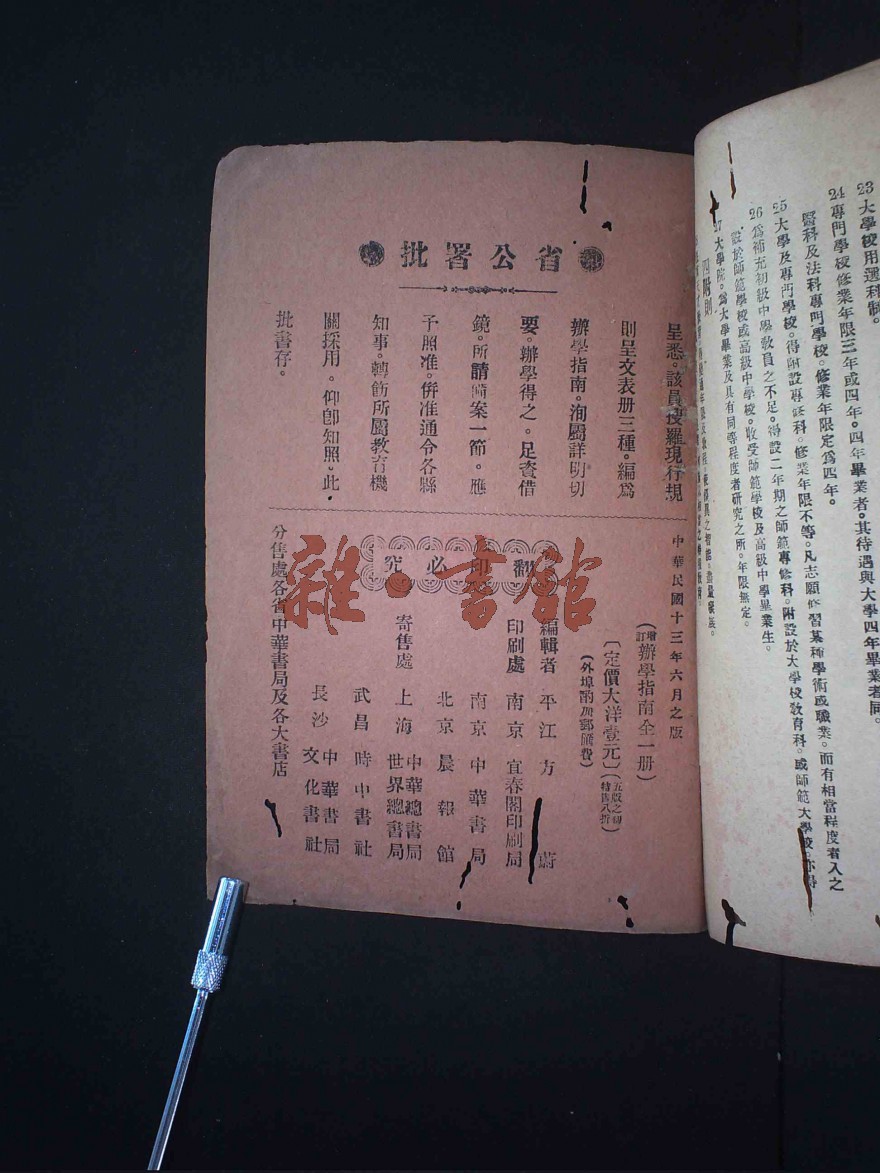 23 大學校用選科制。
24 專門學校修業年限三年或四年。四年畢業者。其待遇與大學四年畢業者同。
醫科及法科專門學校。修業年限定爲四年。
25 大學及專門學校。得附設專修科。修業年限不等。凡志願修習某種學術或職業。而有相當程度者入之
26 爲補充初級中學敎員之不足。得設二年期之師範專修科。附設於大學校敎育科。或師範大學校。亦得
設於師範學校或高級中學校。收受師範學校及高級中學畢業生。
27 大學院。爲大學畢業及具有同等程度者硏究之所。年限無定。
四附則
省公署批
呈悉。該員搜羅現行規
則呈文表册三種。編爲
辦學指南。洵屬詳明切
要。辦學得之。足資借
鏡。所請備案一節。應
予照准。倂准通令各縣
知事。轉飭所屬敎育機
關採用。仰卽知照。此
批書存。
中華民國十三年六月之版
(增訂辦學指南全一册)
(定價大洋壹元)
(外埠酌加郵匯費)
翻印必究
編輯者 平江方蔚
印刷處 南京宜春閣印刷局
寄售處
南京中華書局
北京晨報館
上海中華總書局
世界總書局
武昌時中書社
長沙中華書局
文化書社
分售處各省中華書局及各大書店
雜·書館